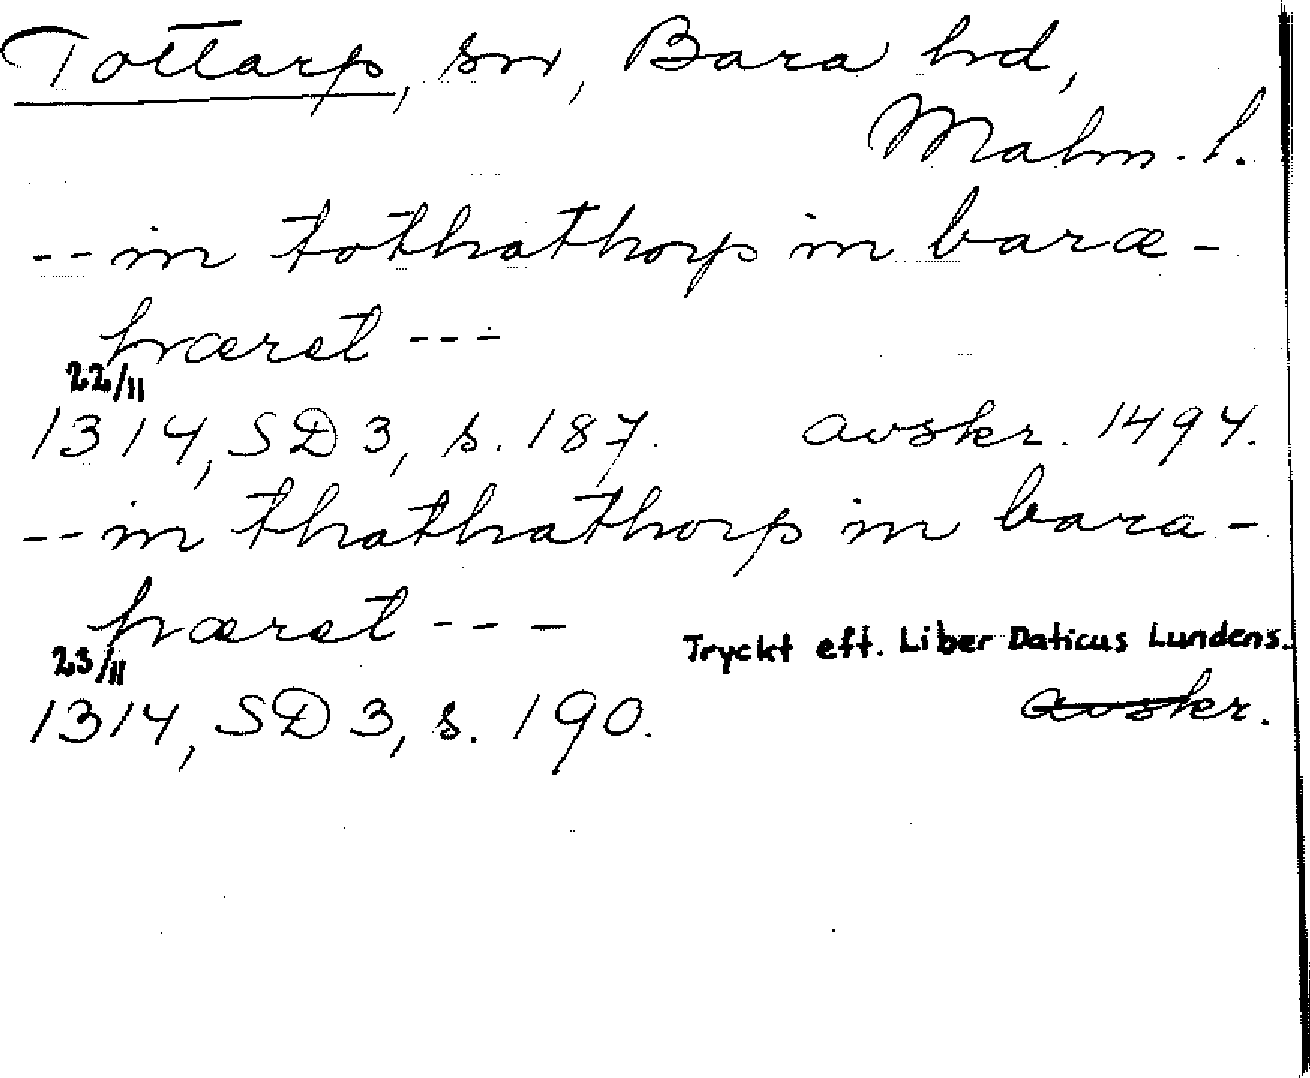 Tottarp, sn, Bara hd,
Malm. l.
-- in tothathorp in baræ-
hæret ---
22/11
1314, SD 3, s. 187. avskr. 1494.
-- in thathathorp in bara-
hæret ---
23/11
Tryckt eft. Liber Daticus Lundens.
1314, SD 3, s. 190. avskr.